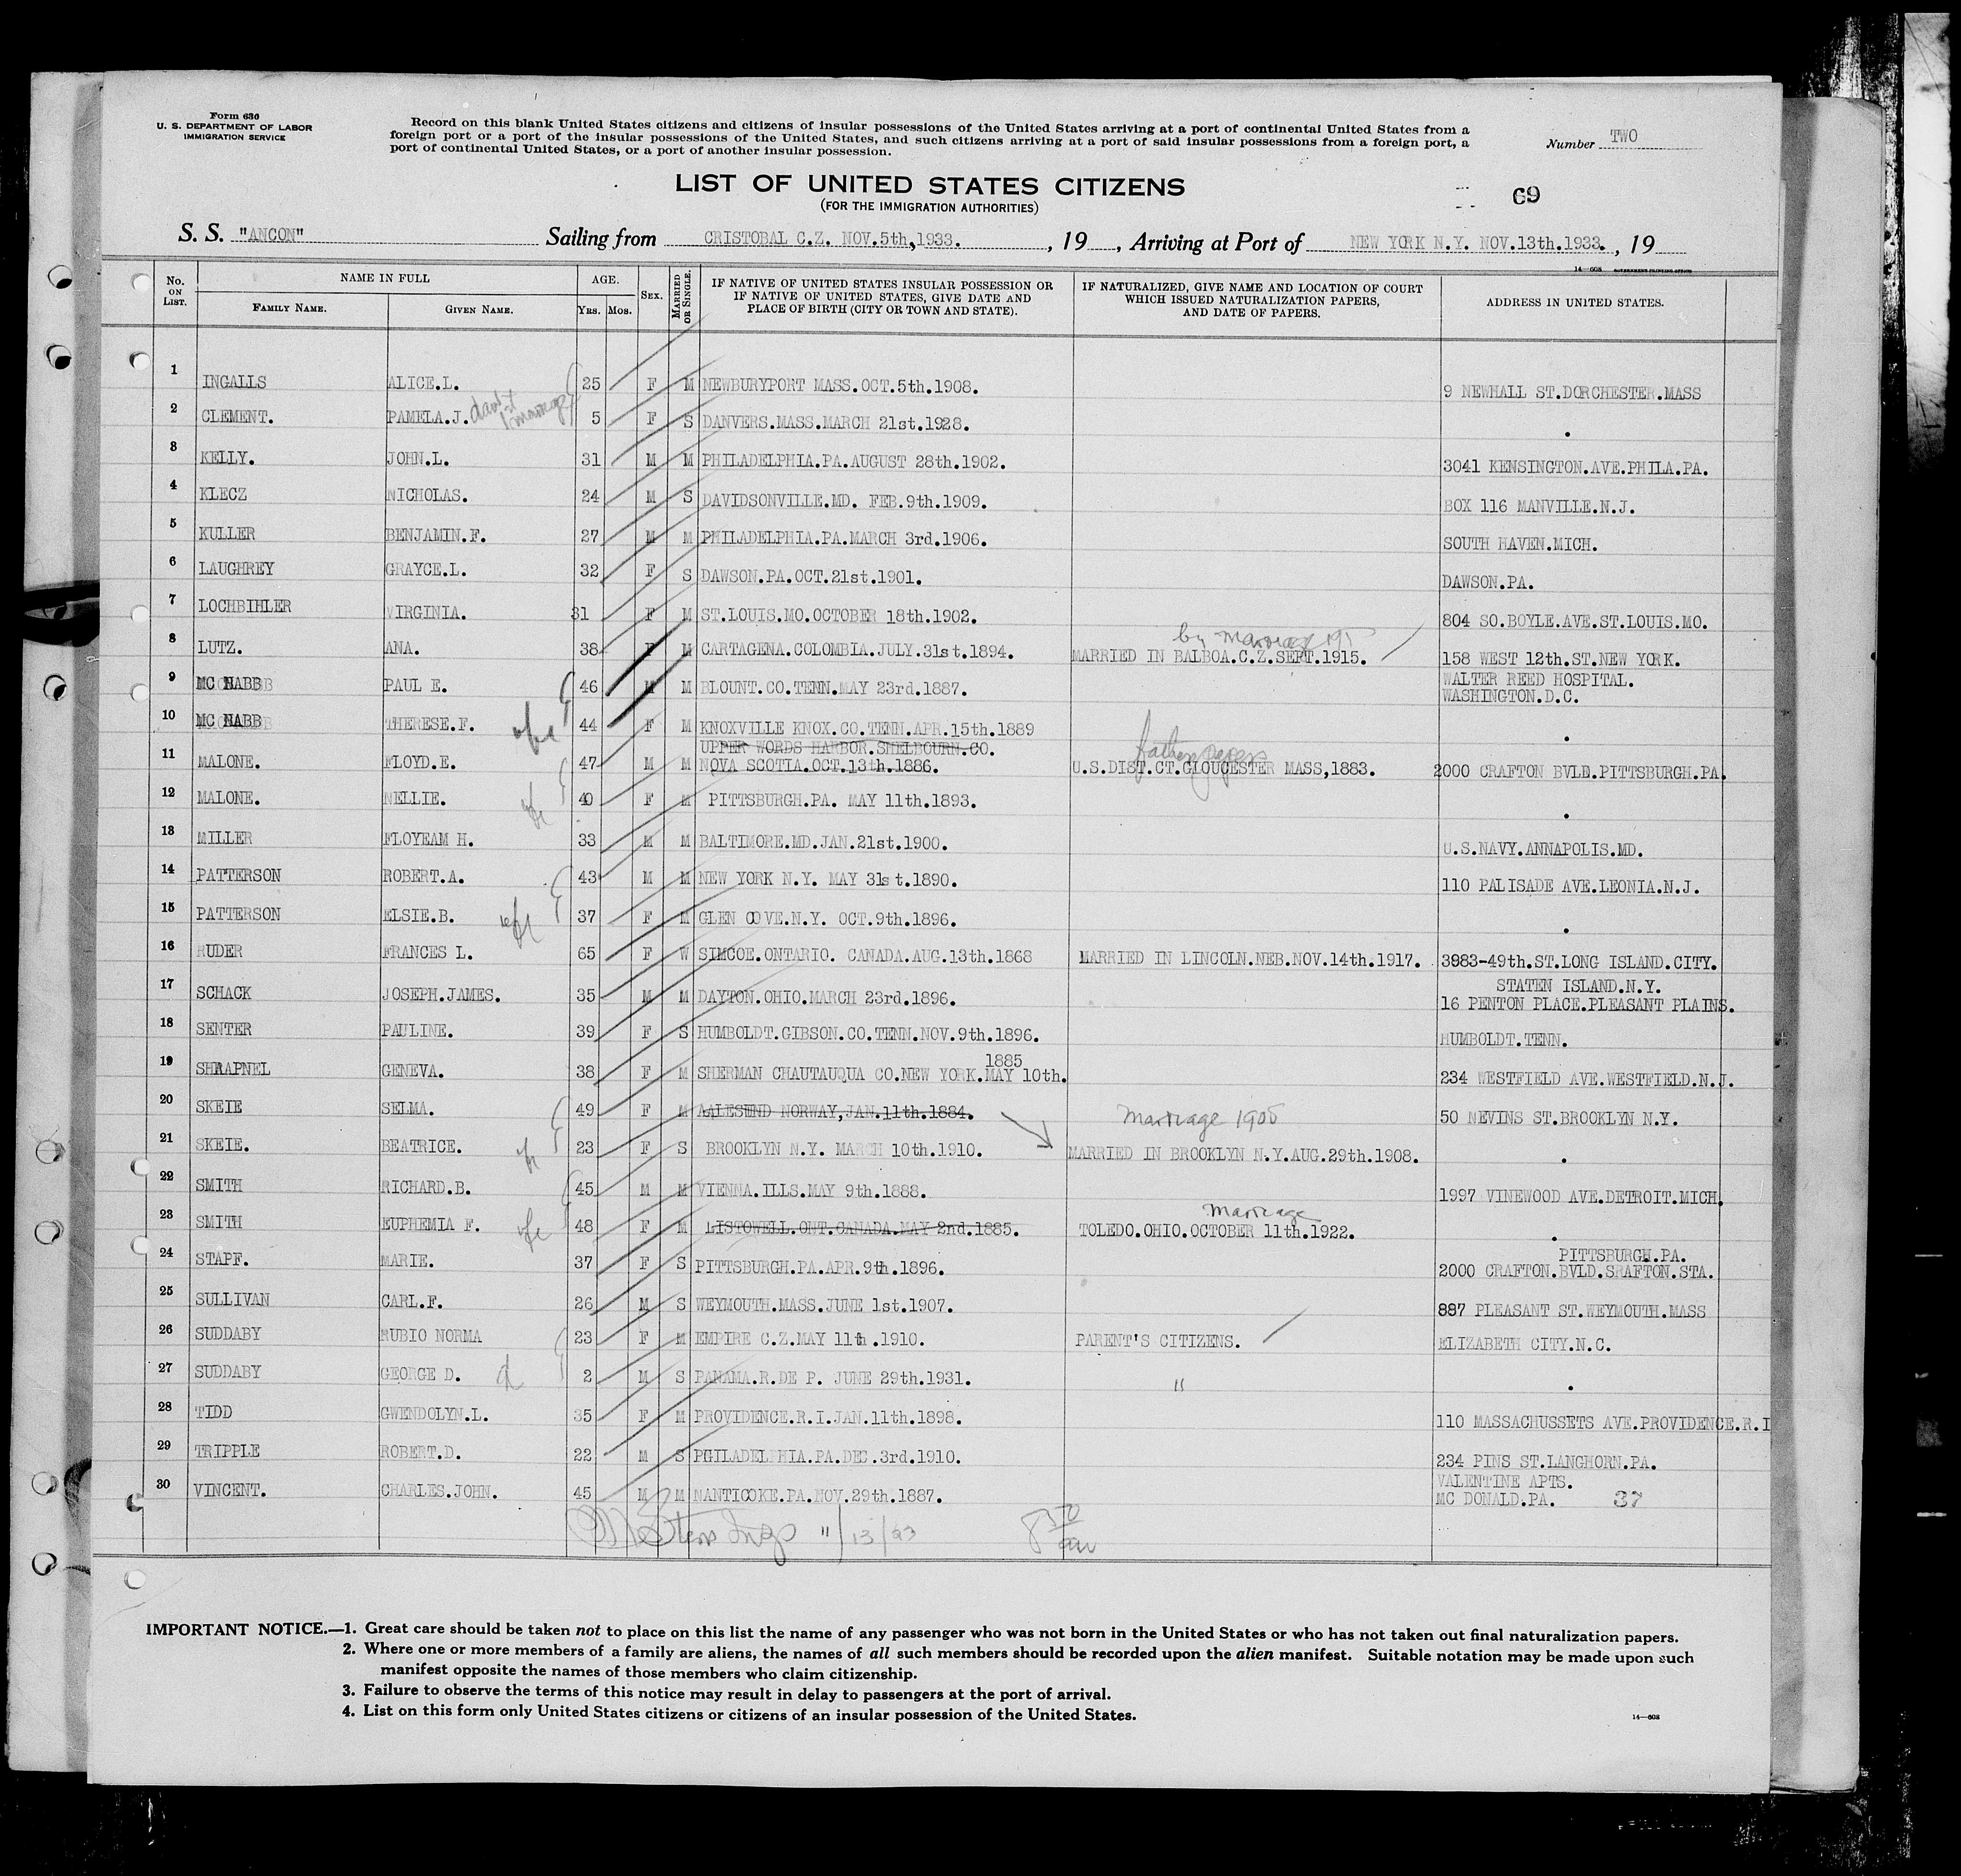 Form 630
U. S. DEPARTMENT OF LABOR
IMMIGRATION SERVICE
Record on this blank United States citizens and citizens of insular possessions of the United States arriving at a port of continental United States from a
foreign port or a port of the insular possessions of the United States, and such citizens arriving at a port of said insular possessions from a foreign port, a
port of continental United States, or a port of another insular possession.
Number TWO
LIST OF UNITED STATES CITIZENS
(FOR THE IMMIGRATION AUTHORITIES)
69
S. S. "ANCON" Sailing from CRISTOBAL C.Z. NOV.5th,1933. , 19 , Arriving at Port of NEW YORK N.Y. NOV.13th.1933. , 19
14—608 GOVERNMENT PRINTING OFFICE
No. ON LIST. NAME IN FULL FAMILY NAME. GIVEN NAME. AGE. YRS. MOS. SEX. MARRIED OR SINGLE. IF NATIVE OF UNITED STATES INSULAR POSSESSION OR IF NATIVE OF UNITED STATES, GIVE DATE AND PLACE OF BIRTH (CITY OR TOWN AND STATE). IF NATURALIZED, GIVE NAME AND LOCATION OF COURT WHICH ISSUED NATURALIZATION PAPERS, AND DATE OF PAPERS. ADDRESS IN UNITED STATES.
1 INGALLS ALICE.L. 25 F M NEWBURYPORT MASS.OCT.5th.1908. 9 NEWHALL ST.DORCHESTER.MASS
2 CLEMENT. PAMELA.J. 5 F S DANVERS.MASS.MARCH 21st.1928. .
3 KELLY. JOHN.L. 31 M M PHILADELPHIA.PA.AUGUST 28th.1902. 3041 KENSINGTON.AVE.PHILA.PA.
4 KLECZ NICHOLAS. 24 M S DAVIDSONVILLE.MD. FEB.9th.1909. BOX 116 MANVILLE.N.J.
5 KULLER BENJAMIN.F. 27 M M PHILADELPHIA.PA.MARCH 3rd.1906. SOUTH HAVEN.MICH.
6 LAUGHREY GRAYCE.L. 32 F S DAWSON.PA.OCT.21st.1901. DAWSON.PA.
7 LOCHBIHLER VIRGINIA. 31 F M ST.LOUIS.MO.OCTOBER 18th.1902. 804 SO.BOYLE.AVE.ST.LOUIS.MO.
by marriage
8 LUTZ. ANA. 38 F M CARTAGENA.COLOMBIA.JULY.31st.1894. MARRIED IN BALBOA.C.Z.SEPT.1915. 158 WEST 12th.ST.NEW YORK.
9 MC NABB PAUL E. 46 M M BLOUNT.CO.TENN.MAY 23rd.1887. WALTER REED HOSPITAL.
WASHINGTON.D.C.
10 MC NABB THERESE.F. wfe 44 F M KNOXVILLE KNOX.CO.TENN.APR.15th.1889 .
UPPER WORDS HARBOR.SHELBOURN.CO. father papers
11 MALONE. FLOYD.E. 47 M M NOVA SCOTIA.OCT.13th.1886. U.S.DIST.CT.GLOUCESTER MASS,1883. 2000 CRAFTON BVLE.PITTSBURGH.PA.
12 MALONE. NELLIE. 40 F M PITTSBURGH.PA. MAY 11th.1893. .
13 MILLER FLOYEAM H. 33 M M BALTIMORE.MD.JAN.21st.1900. U.S.NAVY.ANNAPOLIS.MD.
14 PATTERSON ROBERT.A. 43 M M NEW YORK N.Y. MAY 31st.1890. 110 PALISADE AVE.LEONIA.N.J.
15 PATTERSON ELSIE.B. 37 F M GLEN COVE.N.Y. OCT.9th.1896. .
16 RUDER FRANCES L. 65 F W SIMCOE.ONTARIO. CANADA.AUG.13th.1868 MARRIED IN LINCOLN.NEB.NOV.14th.1917. 3983-49th.ST.LONG ISLAND.CITY.
STATEN ISLAND.N.Y.
17 SCHACK JOSEPH.JAMES. 35 M M DAYTON.OHIO.MARCH 23rd.1896. 16 PENTON PLACE.PLEASANT PLAINS.
18 SENTER PAULINE. 39 F S HUMBOLDT.GIBSON.CO.TENN.NOV.9th.1896. HUMBOLDT.TENN.
1885
19 SHRAPNEL GENEVA. 38 F M SHERMAN CHAUTAUQUA CO.NEW YORK.MAY 10th. 234 WESTFIELD AVE.WESTFIELD.N.J.
20 SKEIE SELMA. 49 F M AALESUND NORWAY,JAN.11th.1884. Marriage 50 NEVINS ST.BROOKLYN N.Y.
21 SKEIE. BEATRICE. 23 F S BROOKLYN N.Y. MARCH 10th.1910. MARRIED IN BROOKLYN N.Y.AUG.29th.1908. .
22 SMITH RICHARD.B. 45 M M VIENNA.ILLS.MAY 9th.1888. 1997 VINEWOOD AVE.DETROIT.MICH.
marriage
23 SMITH EUPHEMIA F. wfe 48 F M LISTOWELL.ONT.CANADA.MAY 2nd.1885. TOLEDO.OHIO.OCTOBER 11th.1922. .
PITTSBURGH.PA.
24 STAPF. MARIE. 37 F S PITTSBURGH.PA.APR.9th.1896. 2000 CRAFTON.BVLD.SRAFTON.STA.
25 SULLIVAN CARL.F. 26 M S WEYMOUTH.MASS.JUNE 1st.1907. 887 PLEASANT ST.WEYMOUTH.MASS
26 SUDDABY RUBIO NORMA 23 F M EMPIRE C.Z.MAY 11th.1910. PARENT'S CITIZENS. ELIZABETH CITY.N.C.
27 SUDDABY GEORGE D. 2 M S PANAMA.R.DE P. JUNE 29th.1931. " .
28 TIDD GWENDOLYN.L. 35 F M PROVIDENCE.R.I.JAN.11th.1898. 110 MASSACHUSSETS AVE.PROVIDENCE.R.I
29 TRIPPLE ROBERT.D. 22 M S PGILADELPHIA.PA.DEC.3rd.1910. 234 PINS ST.LANGHORN.PA.
VALENTINE APTS.
30 VINCENT. CHARLES.JOHN. 45 M M NANTICOKE.PA.NOV.29th.1887. MC DONALD.PA. 37
IMPORTANT NOTICE.—1. Great care should be taken not to place on this list the name of any passenger who was not born in the United States or who has not taken out final naturalization papers.
2. Where one or more members of a family are aliens, the names of all such members should be recorded upon the alien manifest. Suitable notation may be made upon such
manifest opposite the names of those members who claim citizenship.
3. Failure to observe the terms of this notice may result in delay to passengers at the port of arrival.
4. List on this form only United States citizens or citizens of an insular possession of the United States.
14—608